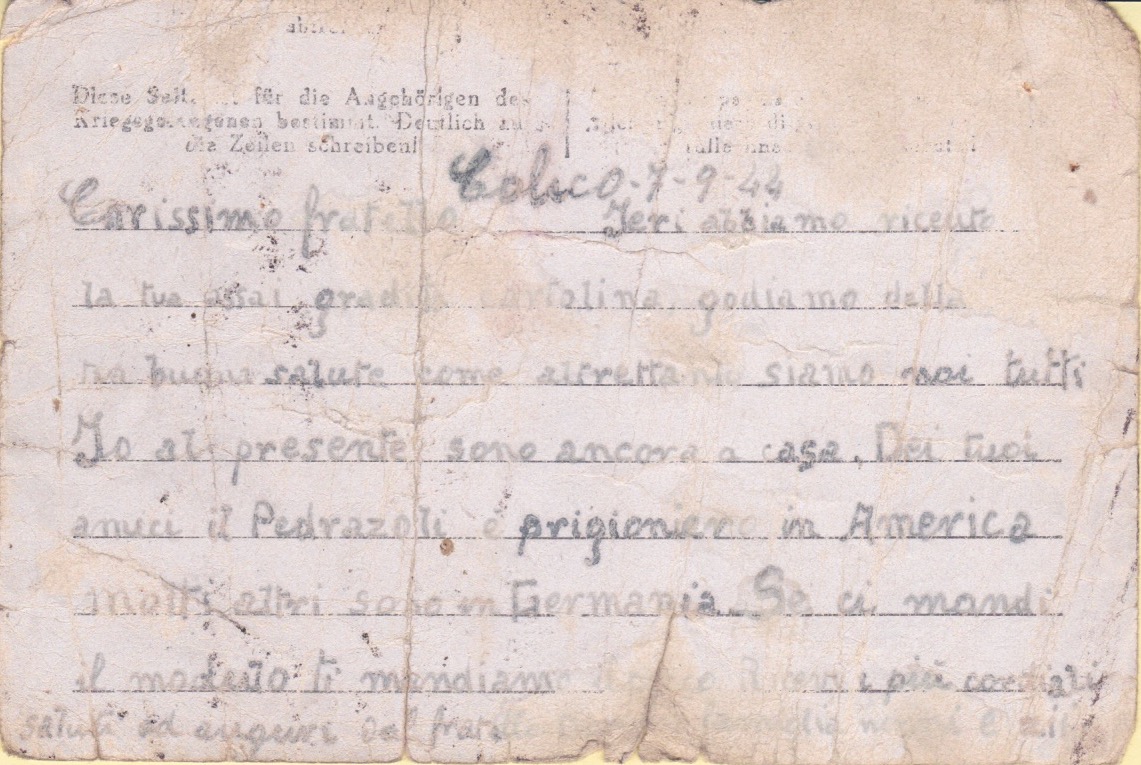 Diese für die Angehörigen des
Kriegsgefangenen bestimmt. Deutlich auf
die Zeilen schreiben!
Colico-7-9-44
Carissimo fratello Jeri abbiamo riceuto
la tua assai gradita cartolina godiamo della
tua buona salute come altrettanto siamo noi tutti
Jo al presente sono ancora a casa. Dei tuoi
amici il Pedrazoli è prigioniero in America
molti altri sono in Germania. Se ci mandi
il modulo ti mandiamo i più cordiali
saluti ed auguri dal fratello famiglia nonni e zii